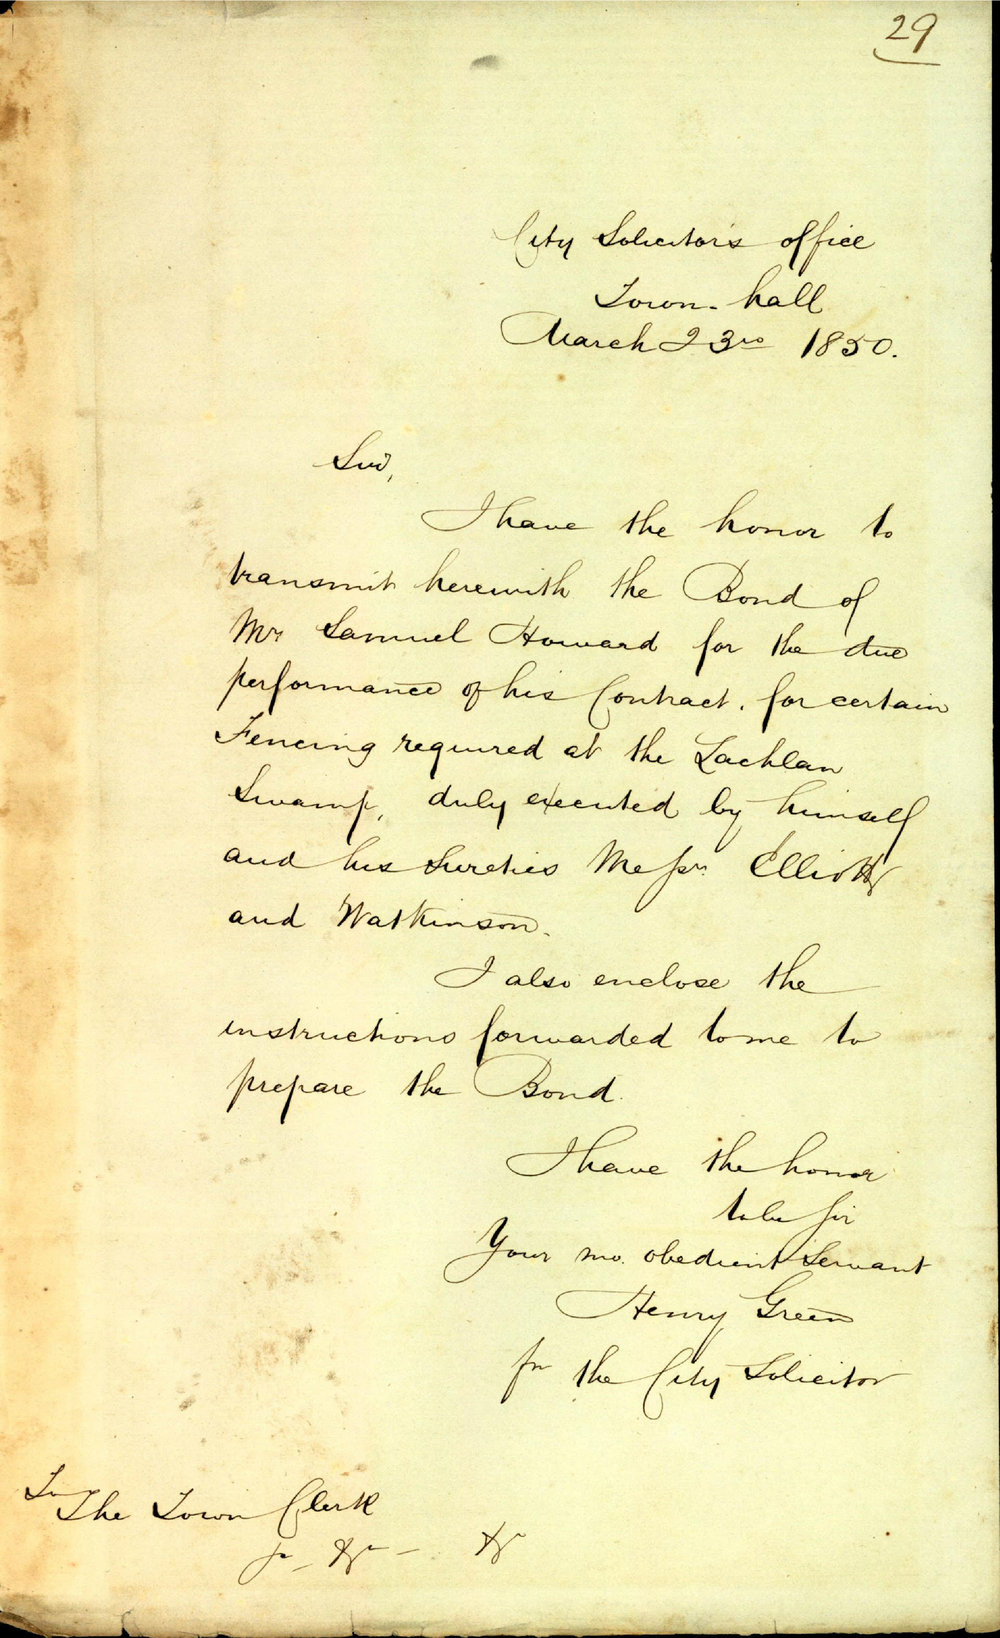 29
City Solicitor's office
Town-hall
March 23rd 1850.
Sir,
I have the honor to
transmit herewith the Bond of
Mr Samuel Howard for the due
performance of his Contract, for certain
Fencing required at the Lachlan
Swamp, duly executed by himself
and his Sureties Messrs. Elliott
and Watkinson.
I also enclose the
instructions forwarded to me to
prepare the Bond.
I have the honor
to be Sir
Your mo. obedient Servant
Henry Green
for the City Solicitor
To
The Town Clerk
&c &c